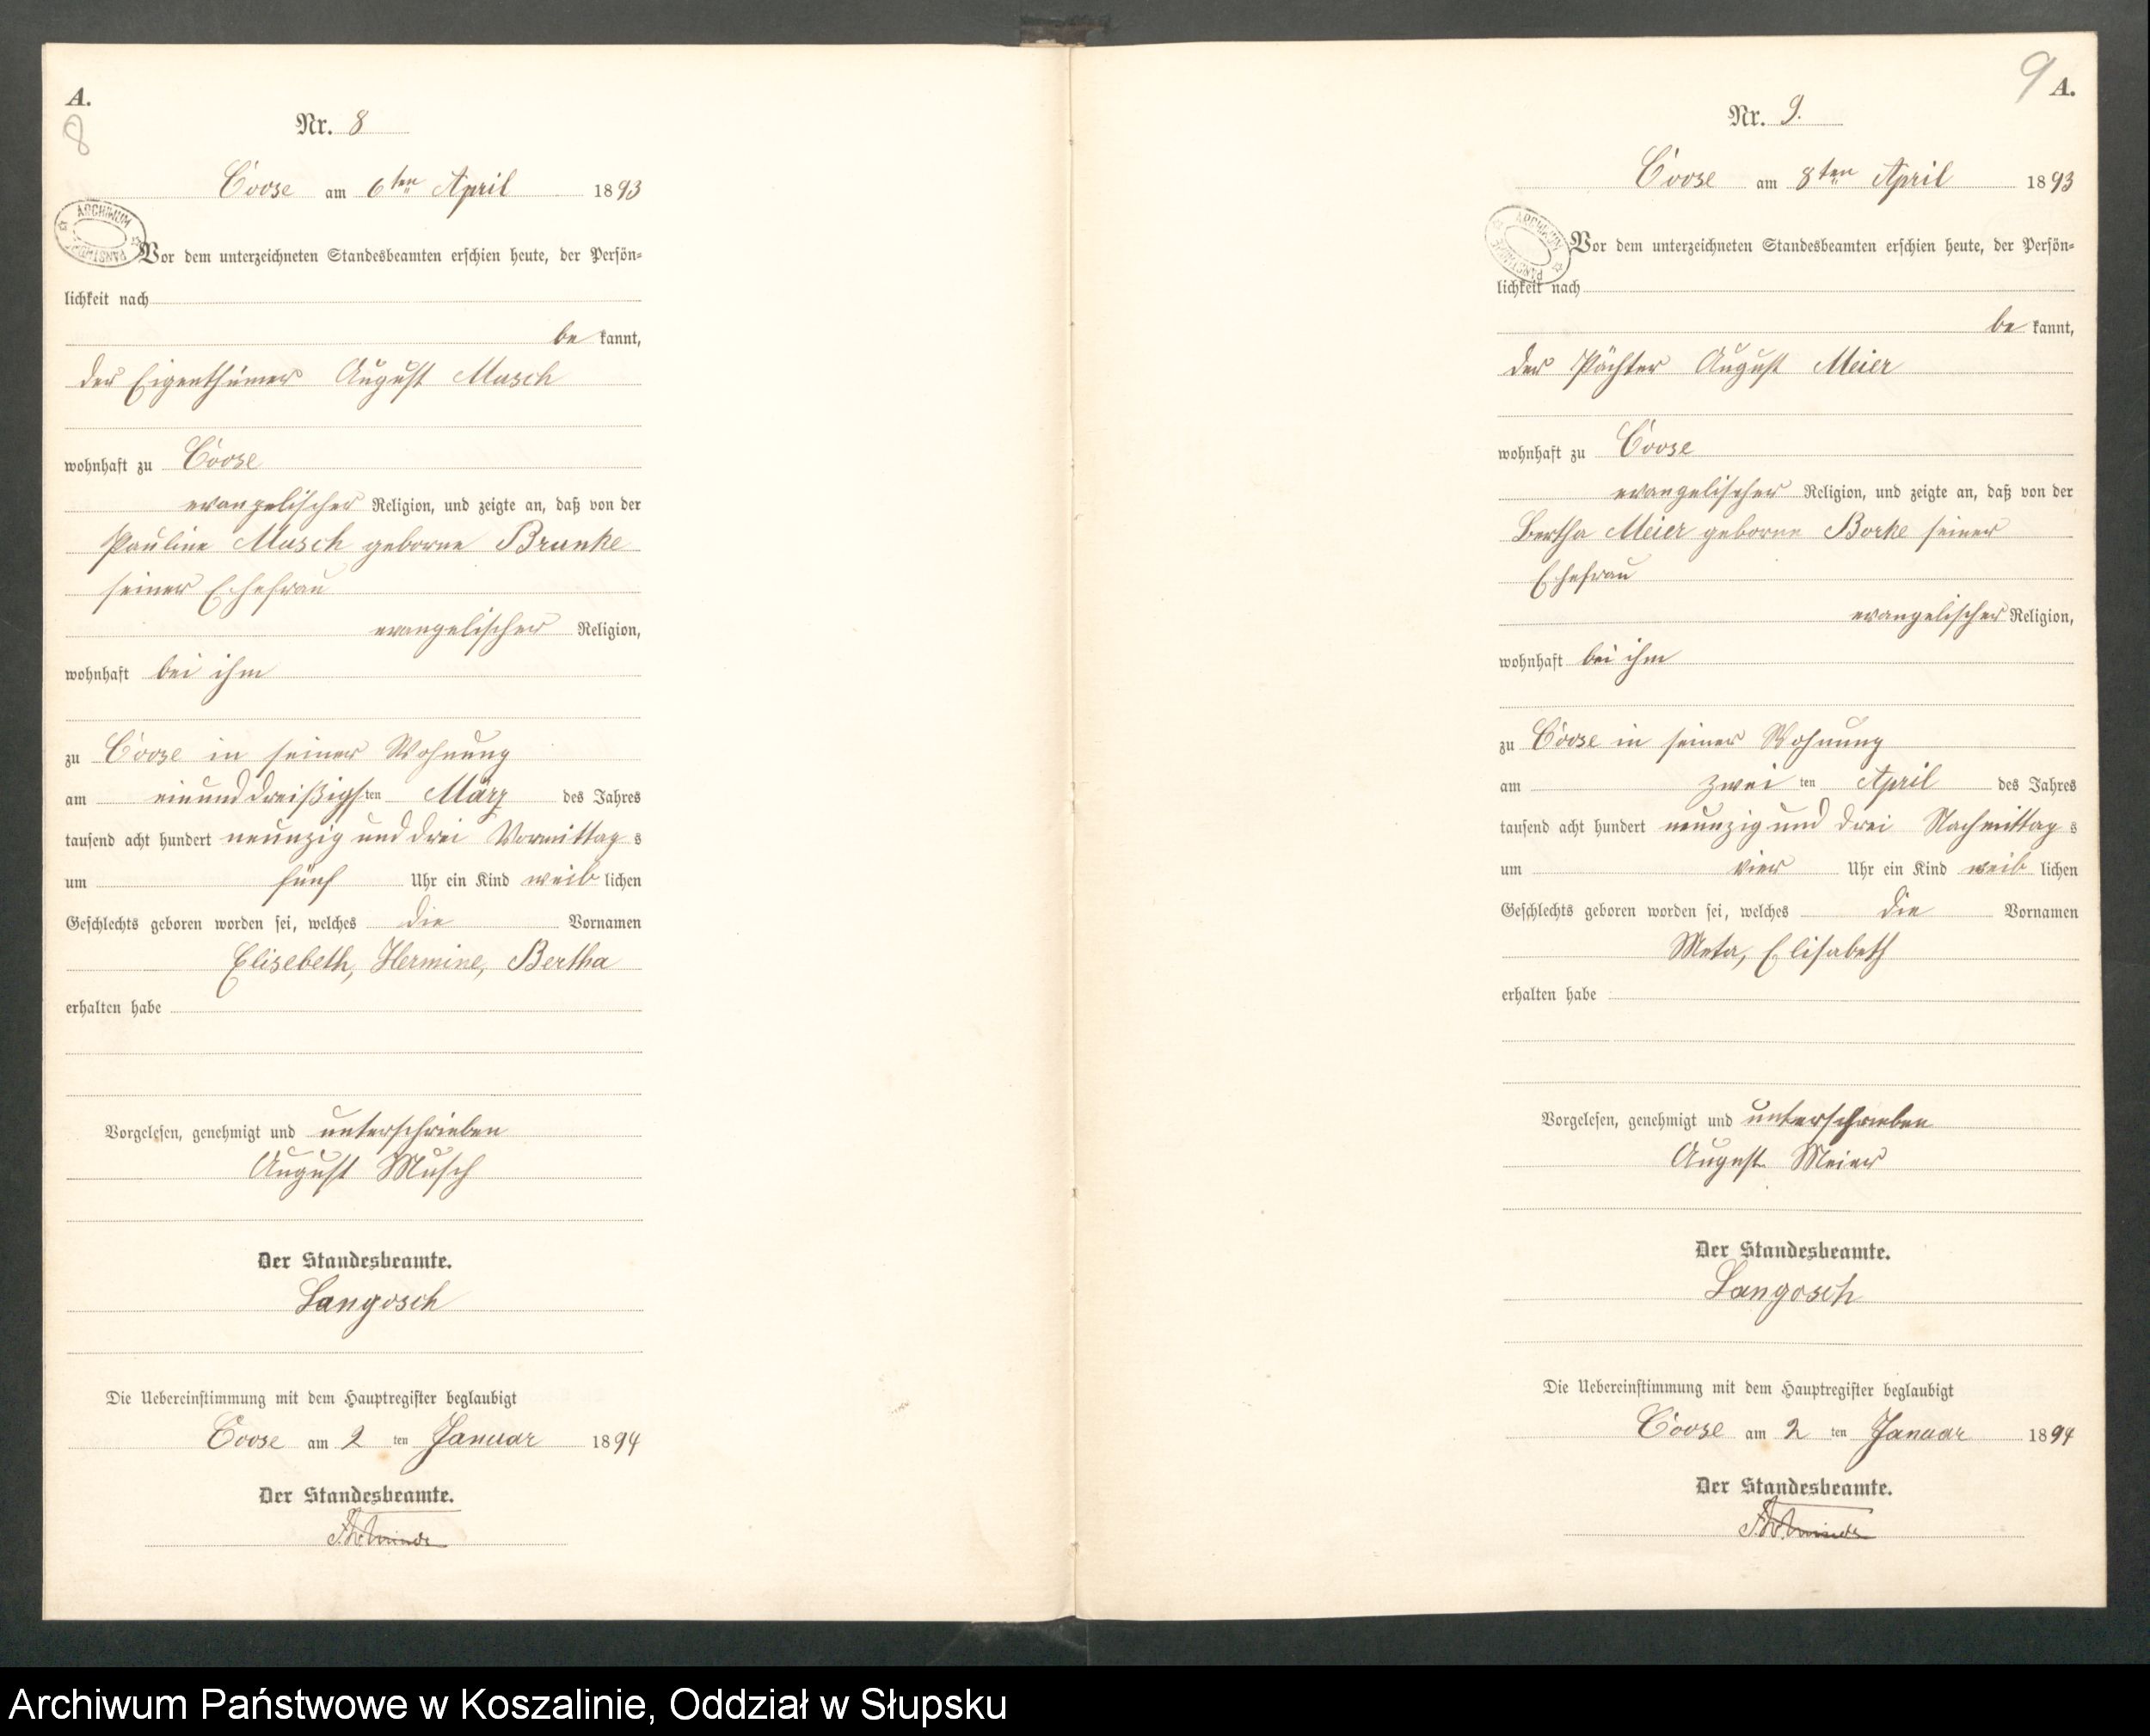 A.
8
Nr. 8
Coose am 6ten April 1893
ARCHIWUM PAŃSTWOWE
Vor dem unterzeichneten Standesbeamten erschien heute, der Persön-
lichkeit nach
be kannt,
der Eigenthümer August Musch
wohnhaft zu Coose
evangelischer Religion, und zeigte an, daß von der
Pauline Musch geborne Brunke
seiner Ehefrau
evangelischer Religion,
wohnhaft bei ihm
zu Coose in seiner Wohnung
am einunddreißigsten März des Jahres
tausend acht hundert neunzig und drei Vormittags
um fünf Uhr ein Kind weiblichen
Geschlechts geboren worden sei, welches die Vornamen
Elisebeth, Hermine, Bertha
erhalten habe
Vorgelesen, genehmigt und unterschrieben
August Musch
Der Standesbeamte.
Langosch
Die Uebereinstimmung mit dem Hauptregister beglaubigt
Coose am 2 ten Januar 1894
Der Standesbeamte.
9
A.
Nr. 9.
Coose am 8ten April 1893
ARCHIWUM PAŃSTWOWE
Vor dem unterzeichneten Standesbeamten erschien heute, der Persön-
lichkeit nach
be kannt,
der Pächter August Meier
wohnhaft zu Coose
evangelischer Religion, und zeigte an, daß von der
Bertha Meier geborne Borke seiner
Ehefrau
evangelischer Religion,
wohnhaft bei ihm
zu Coose in seiner Wohnung
am zwei ten April des Jahres
tausend acht hundert neunzig und drei Nachmittags
um vier Uhr ein Kind weiblichen
Geschlechts geboren worden sei, welches die Vornamen
Meta, Elisabeth
erhalten habe
Vorgelesen, genehmigt und unterschrieben
August Meier
Der Standesbeamte.
Langosch
Die Uebereinstimmung mit dem Hauptregister beglaubigt
Coose am 2 ten Januar 1894
Der Standesbeamte.
Archiwum Państwowe w Koszalinie, Oddział w Słupsku